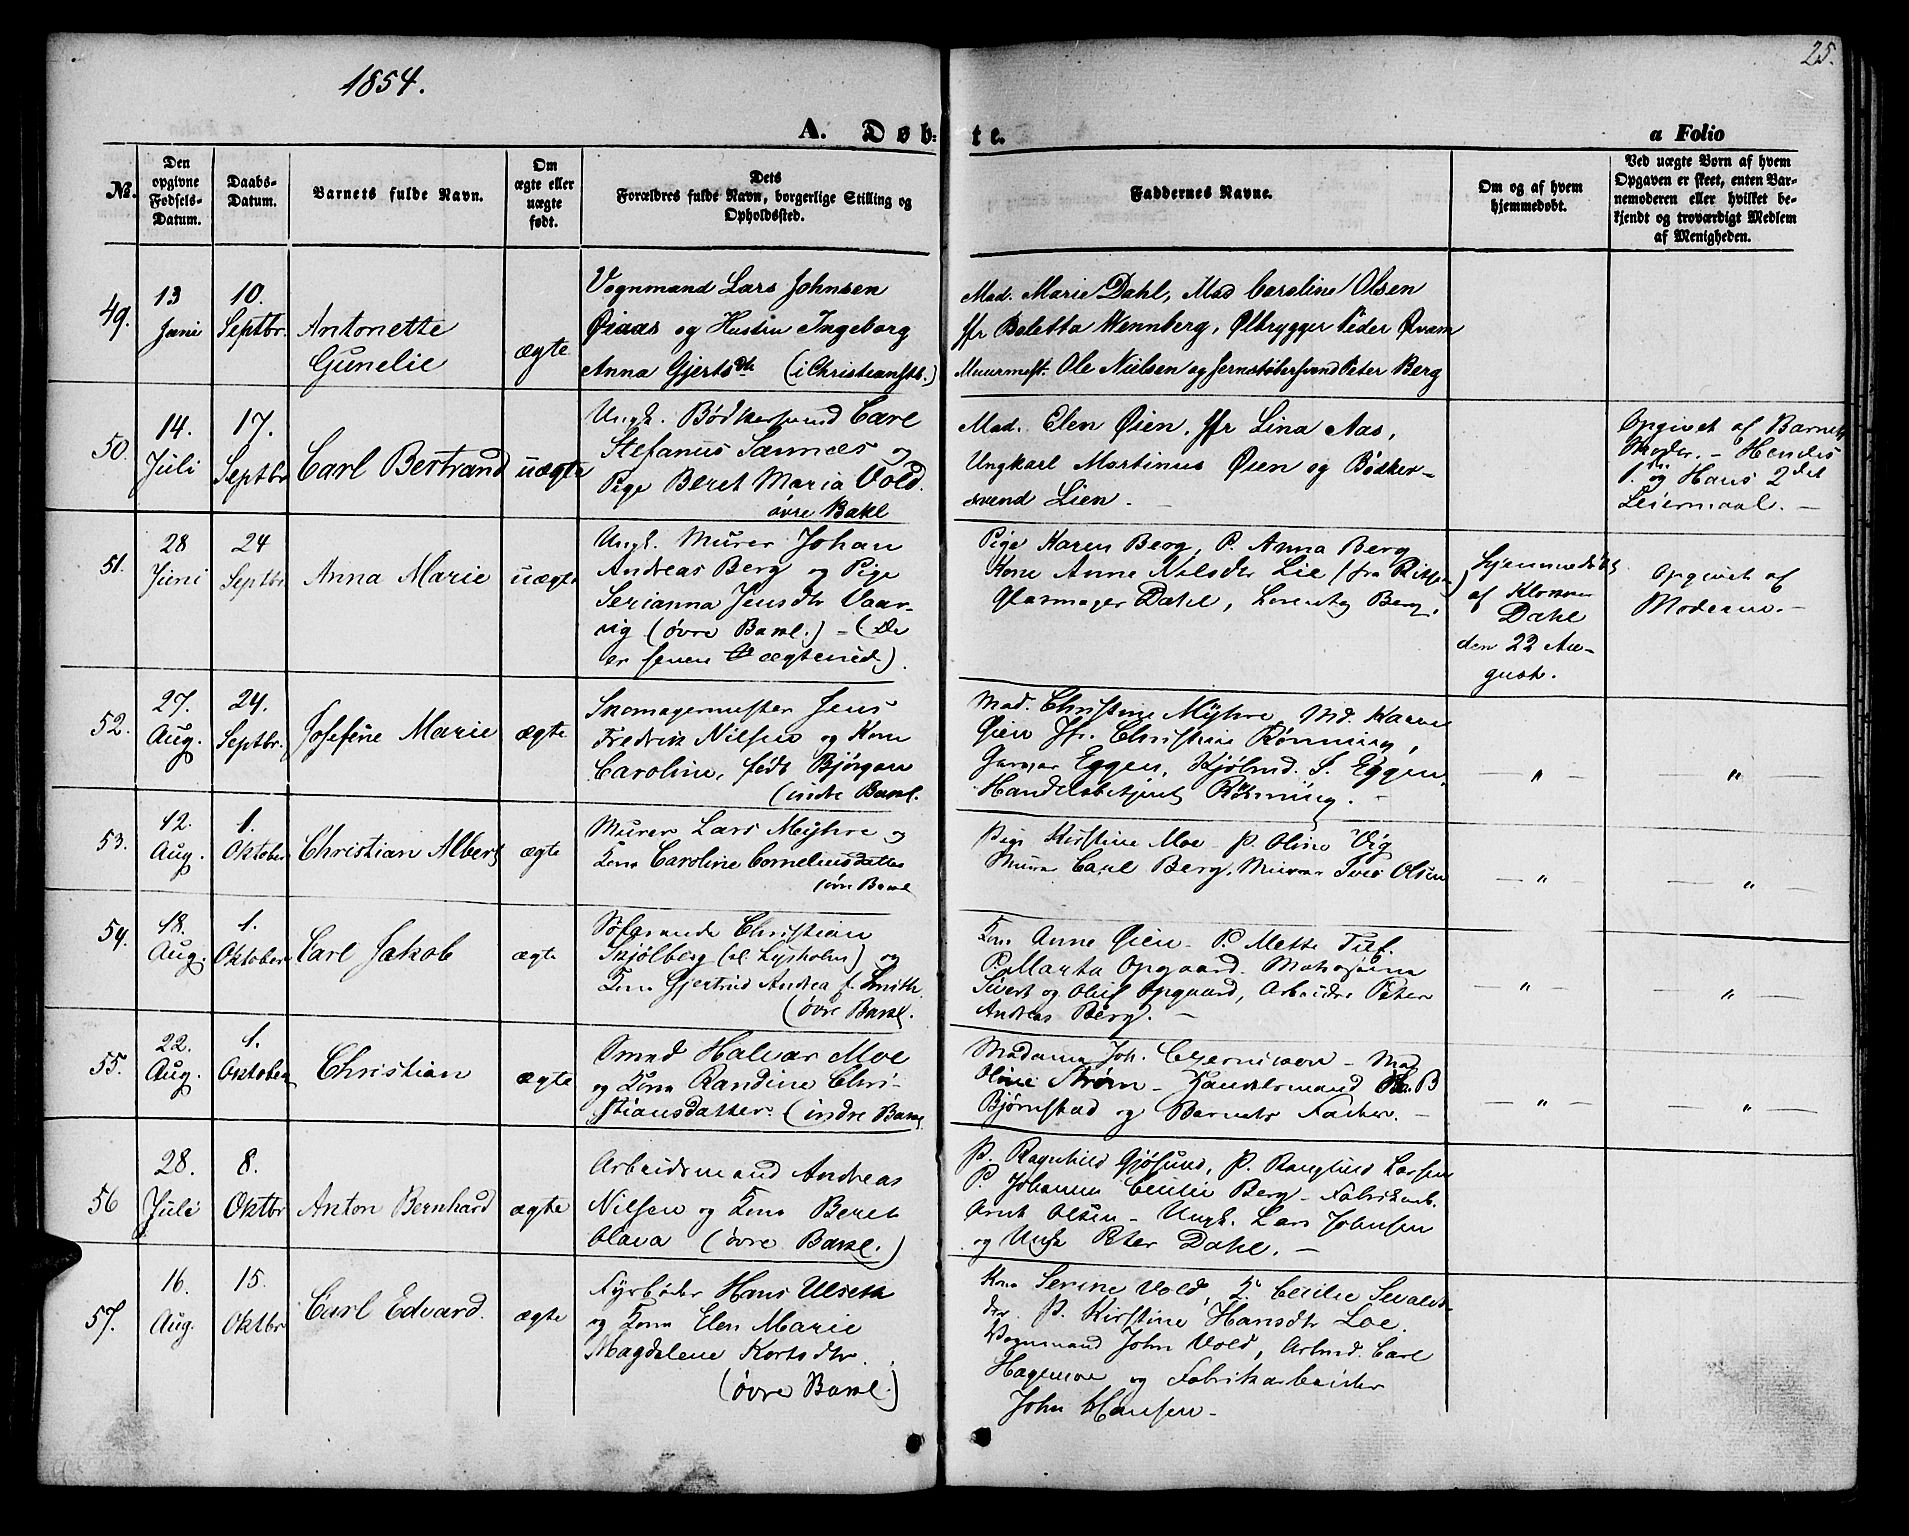 1854.
25.
A. Døb-
te.
a Folio
No.
Den opgivne Fødsels-Datum.
Daabs-Datum.
Barnets fulde Navn.
Om ægte eller uægte født.
Dets Forældres fulde Navn, borgerlige Stilling og Opholdssted.
Faddernes Navne.
Om og af hvem hjemmedøbt.
Ved uægte Børn af hvem Opgaven er skeet, enten Barnemoderen eller hvilket bekjendt og troværdigt Medlem af Menigheden.
49.
13 Juni
10. Septbr.
Antonette
Gunelie
ægte
Vognmand Lars Johnsen
Øiaas og Hustru Ingeborg
Anna Gjertsdtr (i Christianstb.)
Mad. Marie Dahl, Mad Caroline Olsen
Jfr Boletta Wennberg, Ølbrygger Peder Øvam
Muurmest. Ole Nielsen og Jernstøbersvend Peter Berg
50.
14. Juli
17. Septbr
Carl Bertrand
uægte
Ungk. Bødkersvend Carl
Stefanus Sannæs og
Pige Beret Maria Vold.
øvre Bakl
Mad. Elen Øien, Jfr Lina Aas,
Ungkarl Martinus Øien og Bødker-
svend Lien.
Opgivet af Barnets
Moder. - Hendes
1. og Hans 2det
Leiermaal. -
51.
28 Juni
24 Septbr.
Anna Marie
uægte
Ungk. Murer Johan
Andreas Berg og Pige
Serianna Jensdtr Vaar-
vig (øvre Bakl.) - (De
er senere ægteviede).
Pige Karen Berg, P. Anna Berg
Kone Anne Nilsdtr Lie (fra Rissen)
Glasmager Dahl, Lorents Berg.
Hjemmedøbt
af Klokker
Dahl
den 22 Au-
gust.
Opgivet af
Moderen. -
52.
27. Aug.
24. Septbr.
Josefine Marie
ægte
Skomagermester Jens
Fredrik Nilsen og Kone
Caroline, født Bjørgan
(indre Bakl.
Mad. Christine Myhre, Md. Karen
Øien Jfr. Christine Rønning,
Garver Eggen, Kjøbmd. S. Eggen,
Handelsbetjent Rønning. -
— " —
— " —
53.
12. Aug.
1. Oktober
Christian Albert
ægte
Murer Lars Myhre og
Kone Caroline Corneliusdatter
øvre Bakl
Pige Kirstine Moe - P. Oline Vig
Murer Carl Berg, Murer Iver Olsen
— " —
— " —
54.
18. Aug.
1. Oktober
Carl Jakob
ægte
Søfarende Christian
Skjølberg (el. Lysholm) og
Kone Gjertrud Andrea f. Smith.
(øvre Bakl.
Kone Anne Øien - P. Mette
P. Marta Opgaard. Matroserne
Sivert og Oluf Opgaard, Arbeider Peter
Andreas Berg. -
— " —
— " —
55.
22. Aug.
1. Oktober
Christian
ægte
Smed Halvar Moe
og Kone Randine Chri-
stiansdatter. (indre Bakl
Madame Joh. - Mad
Oline Strøm - Handelsmand B
Bjørnstad og Barnets Fader. -
— " —
— " —
56
28. Juli
8. Oktbr
Anton Bernhard
ægte
Arbeidsmand Andreas
Nilsen og Kone Beret
Olava (øvre Bakl.)
P. Ragnhild Gjøsund, P. Ranghild Larsen
P. Johanna Cecilie Berg - Fabrikarb.
Arnt Olsen - Ungk. Lars Johnsen
og Ungk Peter Dahl. -
57.
16. Aug.
15. Oktbr
Carl Edvard.
ægte
Fyrbøder Hans Ulseth
og Kone Elen Marie
Magdalene Kortsdtr.
(øvre Bakl.)
Kone Serine Vold, K. Cecilie Sevalds-
dtr. P. Kirstine Hansdtr Loe.
Vognmand John Vold, Arbmd. Carl
Hagemoe og Fabrikarbeider
John Hansen -